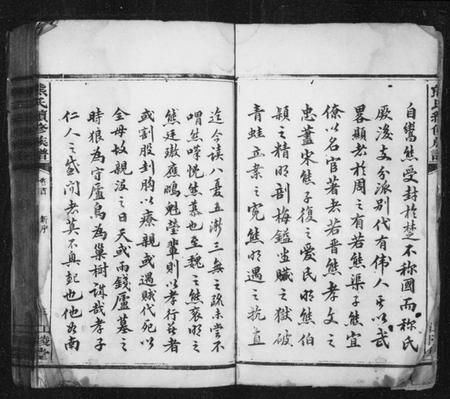 自鬻熊受封於楚不稱國而稱氏
厥後支分派別代有偉人其以武
畧顯者於周之有若熊渠子熊宜
僚以名宦著者若晉熊孝文之
忠藎宋熊子復之愛民明熊伯
穎之精明剖梅鎰盜賊之獄破
青蛙立業之冤熊明遇之抗直
迄今讀八聶五漸三無之疏未嘗不
喟然嘆慌然慕也至魏之熊襄明之
熊廷璈應鵬魁瑩輩則以孝行著
或割股刲胸以療親或遇賊代死以
全母故親沒之日天或雨錢廬墓之
時狼為守廬鳥為巢樹誠哉孝子
仁人之盛聞者莫不興起也他如南
熊氏續修族譜
熊氏續修族譜
卷首
新序